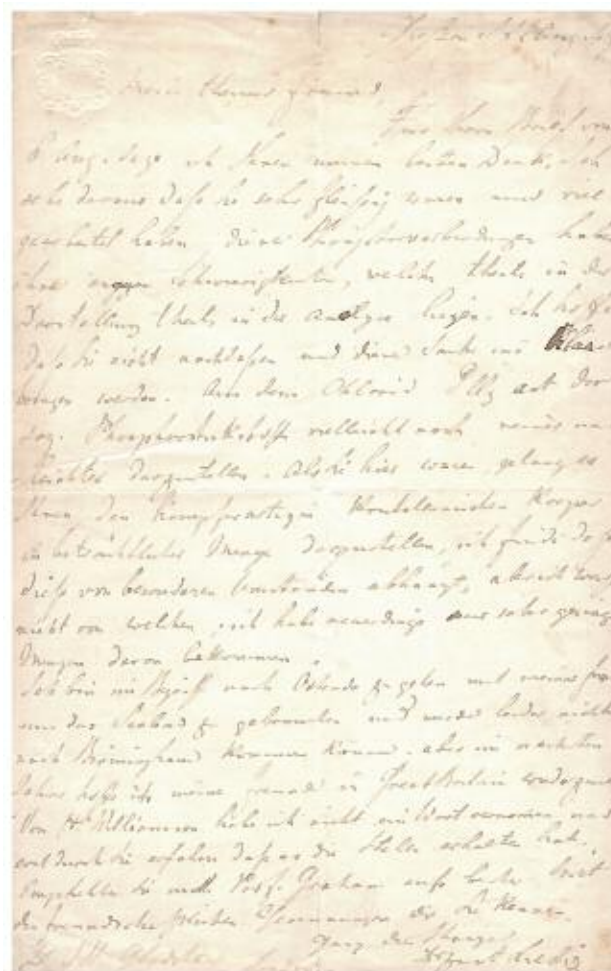 Mein theurer Freund,
Für Ihren Brief vom
sage ich Ihnen meinen besten Dank, ich
sehe daraus daß Sie sehr fleißig waren und viel
gearbeitet haben. diese Phosphorverbindungen haben
ihre eignen Schwierigkeiten, welche theils in der
Darstellung theils in die Analyse liegen. Ich hoffe
daß Sie nicht nachlaßen und diese Sache ins Klare
bringen werden. Aus dem Chlorid ist der
sog. Phosphorstickstoff vielleicht noch reiner und
leichter darzustellen. Als Sie hier waren gelang es
Ihnen den Körper
in beträchtlicher Menge darzustellen, ich finde daß
dieß von besonderen Umständen abhängt, aber ich weiß
nicht von welchen, ich habe neuerdings nur sehr geringe
Mengen davon bekommen.
Ich bin im Begriff nach Ostende zu gehen mit meiner Frau
um das Seebad zu gebrauchen und werde leider nicht
nach Birmingham kommen können. aber im nächsten
Jahre hoffe ich meine Freunde in Great Britain
Von Dr Williamson habe ich nicht ein Wort vernommen, und
erst durch Sie erfahren daß er die Stelle erhalten hat.
Empfehlen Sie mich Prof. Graham aufs beste
die Kennen
Ganz der Ihrige
Liebig
Gladstone